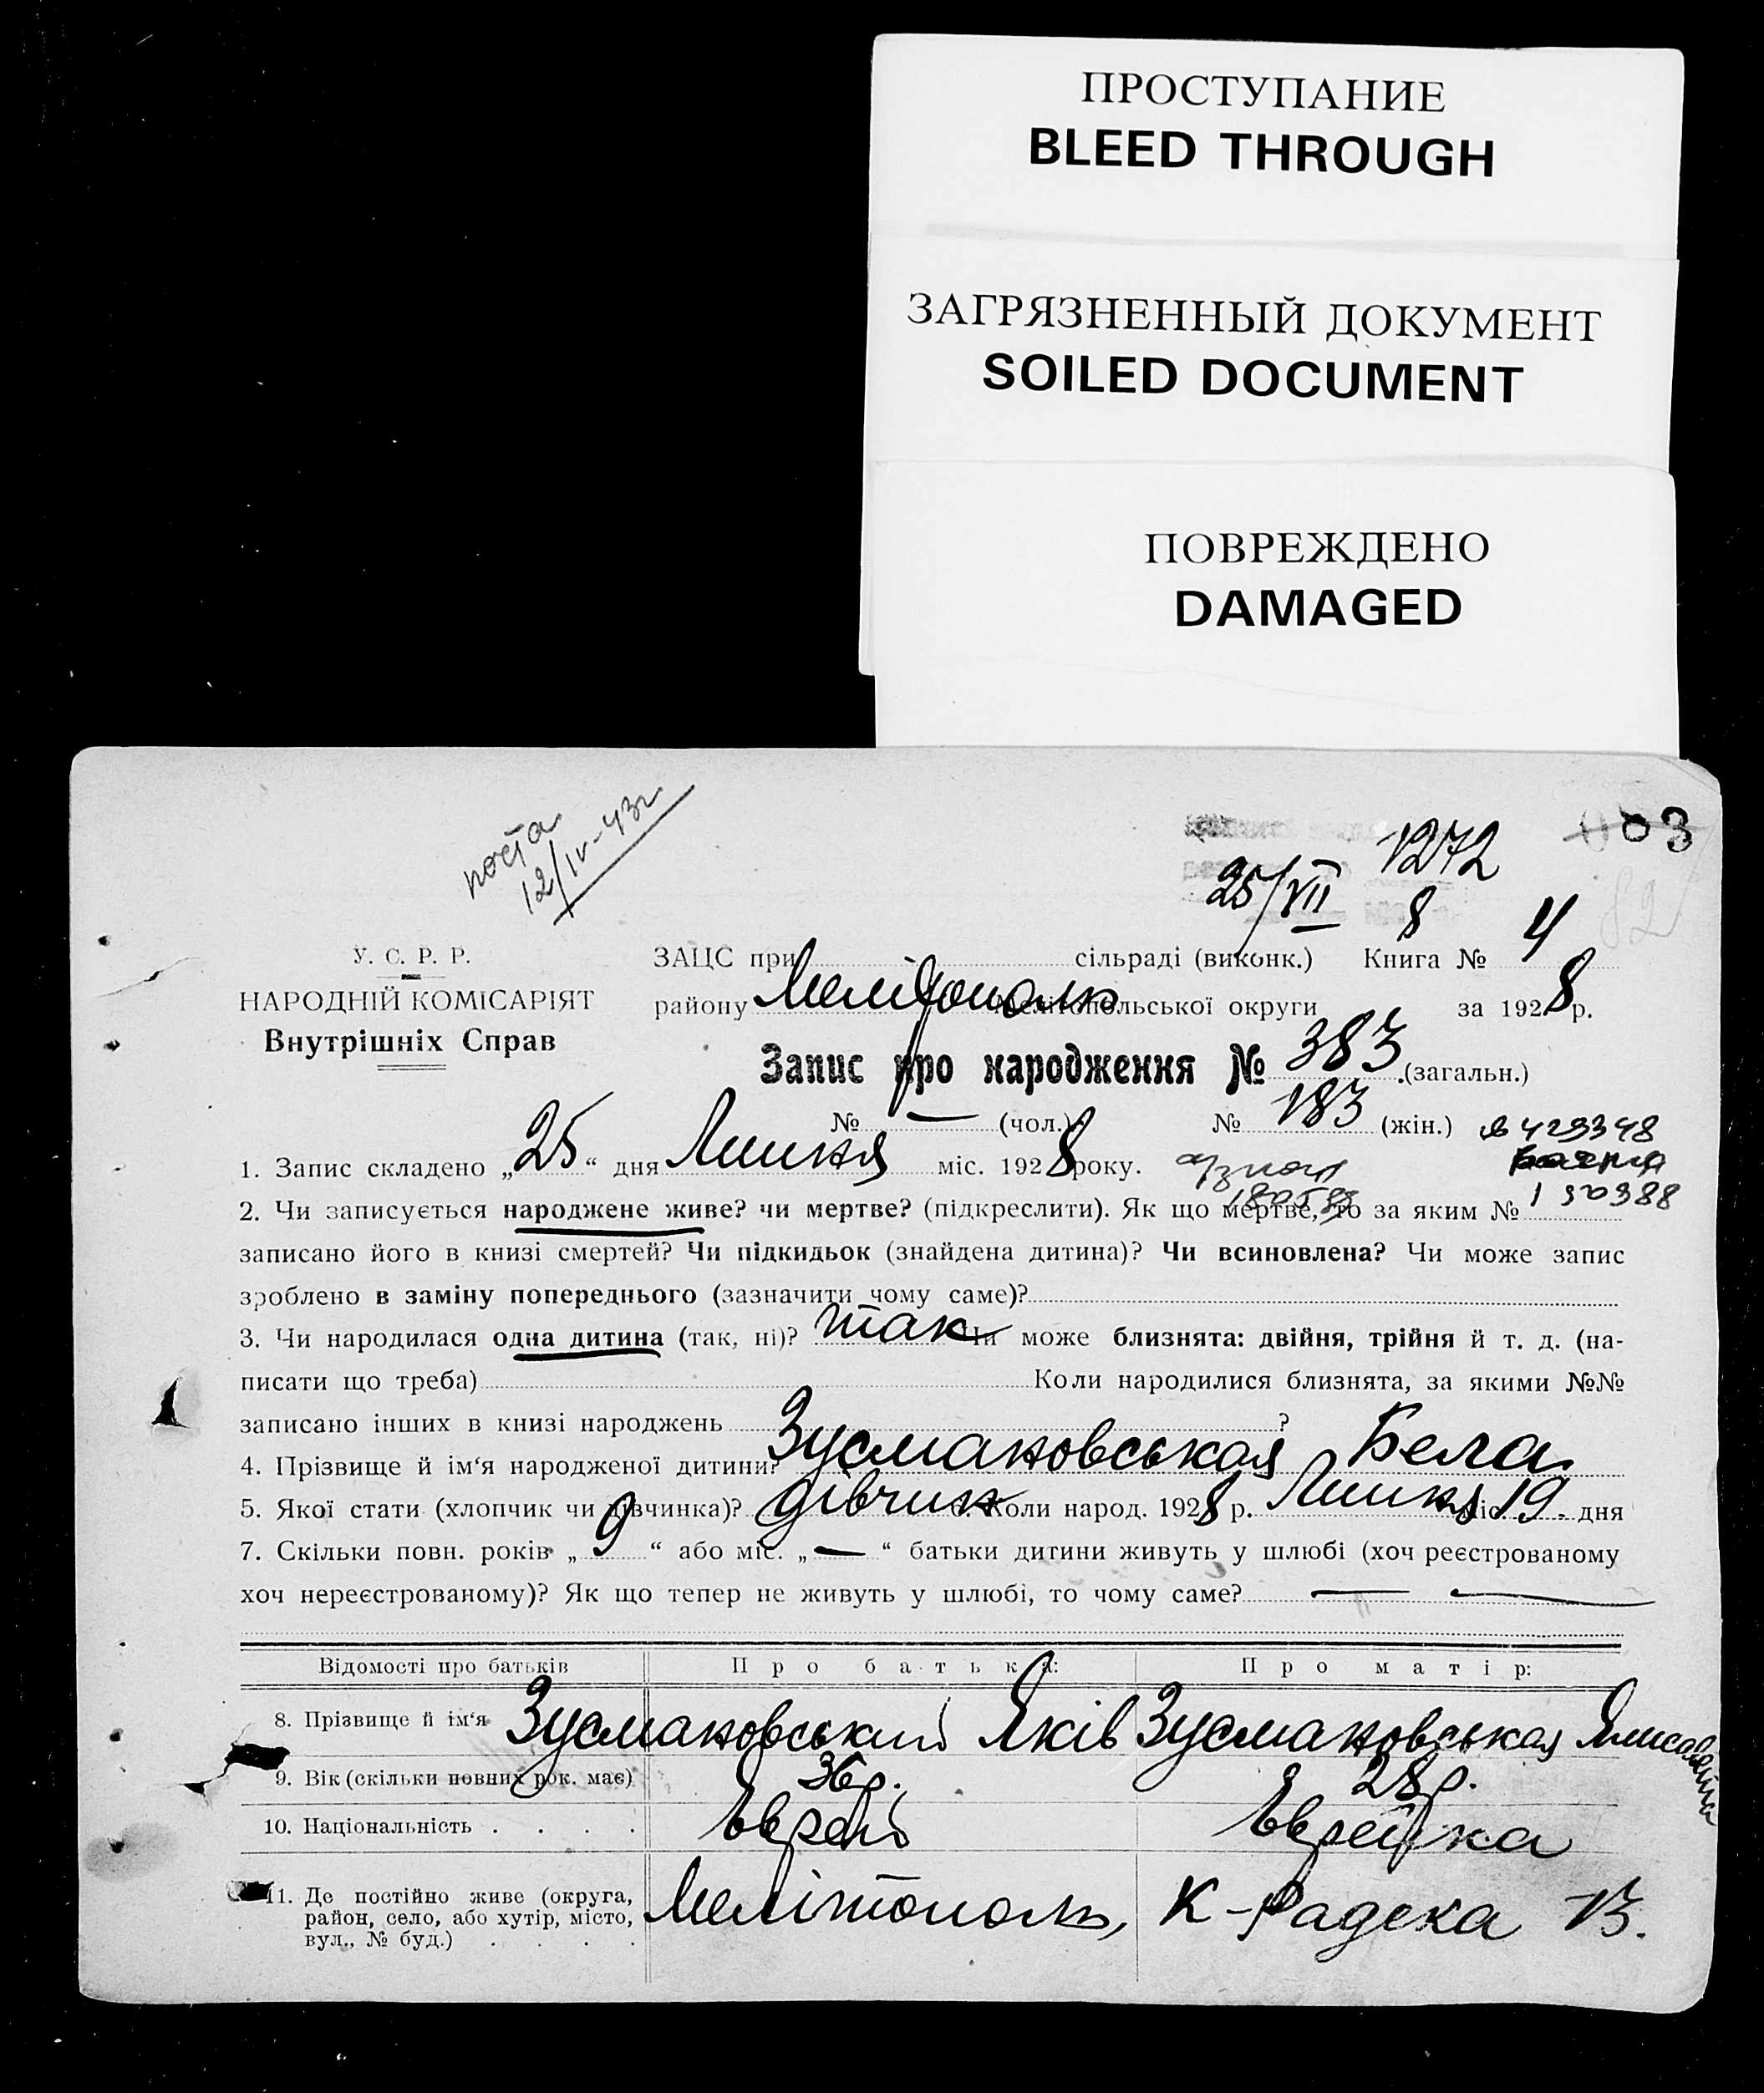 ПРОСТУПАНИЕ
BLEED THROUGH
ЗАГРЯЗНЕННЫЙ ДОКУМЕНТ
SOILED DOCUMENT
ПОВРЕЖДЕНО
DAMAGED
12/IV-43г
1272
003
25/VII 8
82
У. С. Р. Р.
НАРОДНІЙ КОМІСАРІЯТ
Внутрішніх Справ
ЗАЦС при сільраді (виконк.) Книга № 4
району Мелітополь Мелітопольської округи за 1928 р.
Запис про народження № 383 (загальн.)
№ — (чол.) № 183 (жін.)
429348
1. Запис складено „25“ дня Липня міс. 1928 року.
190388
2. Чи записується народжене живе? чи мертве? (підкреслити). Як що мертве, то за яким №
записано його в книзі смертей? Чи підкидьок (знайдена дитина)? Чи всиновлена? Чи може запис
зроблено в заміну попереднього (зазначити чому саме)?
3. Чи народилася одна дитина (так, ні)? так Чи може близнята: двійня, трійня й т. д. (на-
писати що треба) Коли народилися близнята, за якими №№
записано інших в книзі народжень ?
4. Прізвище й ім‘я народженої дитини? Зусмановськая Бела
5. Якої стати (хлопчик чи дівчинка)? дівчин 6. Коли народ. 1928 р. Липня міс. 19 дня
7. Скільки повн. років „9“ або міс. „—“ батьки дитини живуть у шлюбі (хоч реєстрованому
хоч нереєстрованому)? Як що тепер не живуть у шлюбі, то чому саме? — —
Відомості про батьків Про батька: Про матір:
8. Прізвище й ім‘я Зусмановський Яків Зусмановськая Єлисавета
9. Вік (скільки повних рок. має) 36 р. 28 р.
10. Національність . . . . Єврей Єврейка
11. Де постійно живе (округа, район, село, або хутір, місто, вул., № буд.) . . . . Мелітополь, К-Радека 13.